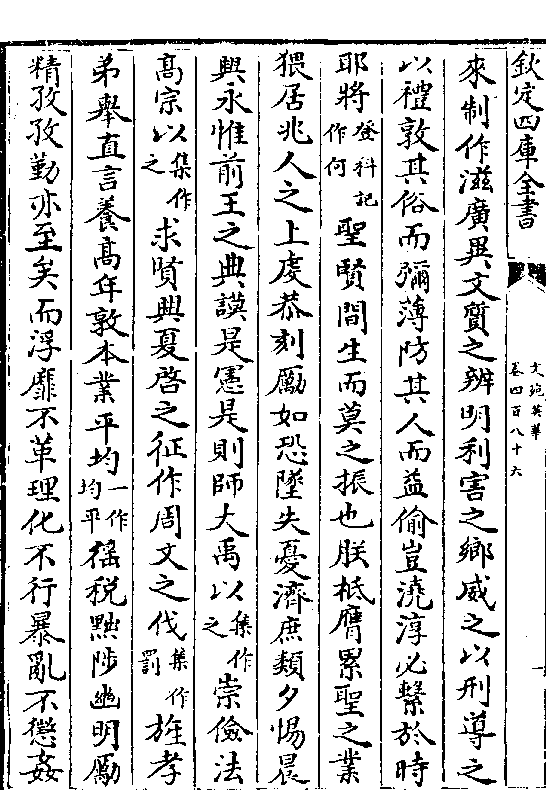 欽定四庫全書
文苑英華
卷四百八十六
來制作滋廣異文質之辨明利害之鄉威之以刑導之
以禮敦其俗而彌薄防其人而益偷豈澆淳必繫於時
耶將登科記作何聖賢間生而莫之振也朕祗膺累聖之業
猥居兆人之上虔恭刻厲如恐墜失憂濟庶類夕惕晨
興永惟前王之典謨是憲是則師大禹以集作之崇儉法
高宗以集作之求賢興夏啓之征作周文之伐集作罰旌孝
弟舉直言養高年敦本業平均一作均平徭税黜陟幽明勵
精孜孜勤亦至矣而浮靡不革理化不行暴亂不懲姦